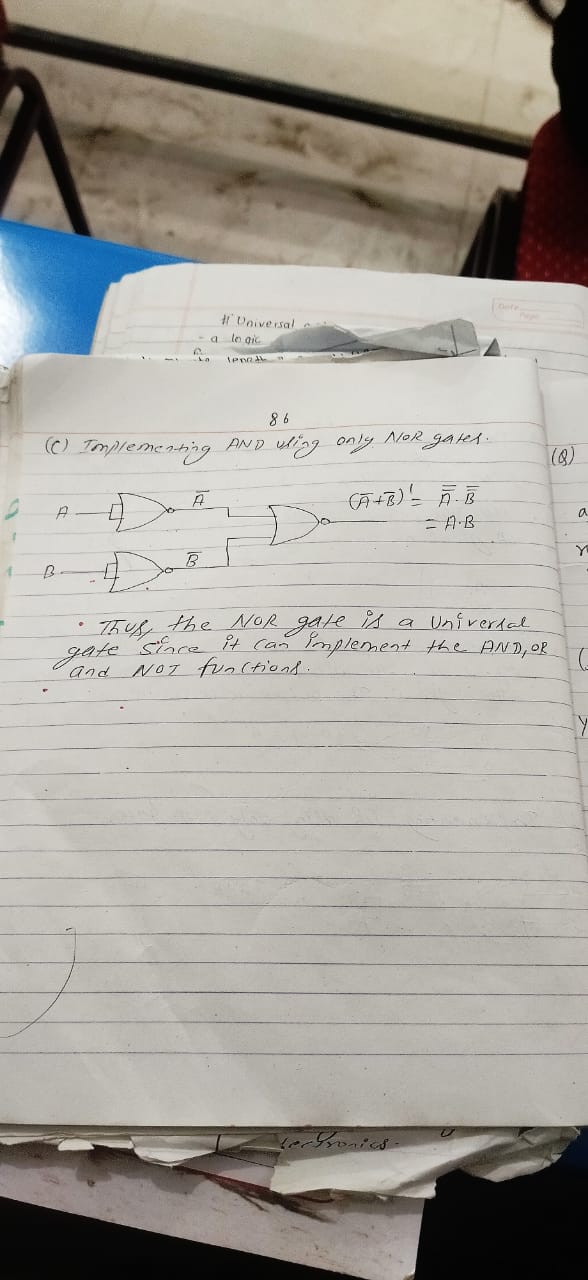 # Universal
- a logic
Date
Page
86
(C) Implementing AND using only NOR gates.
(Q)
A
A̅
(A̅+B̅)' = A̿ . B̿
= A.B
B
B̅
• Thus, the NOR gate is a Universal
gate since it can implement the AND, OR
and NOT functions.
a
n
Y
lectronics.